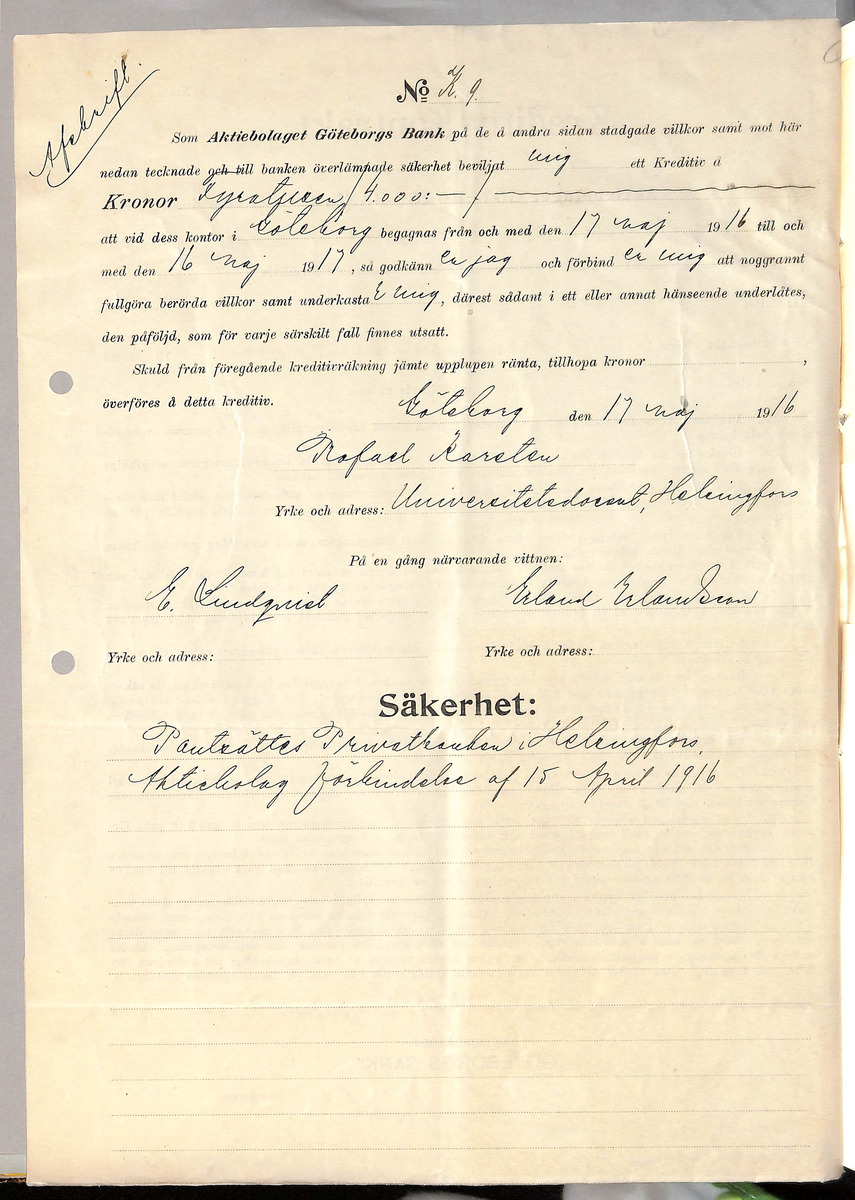 Afskrift.
No K. 9.
Som Aktiebolaget Göteborgs Bank på de å andra sidan stadgade villkor samt mot här
nedan tecknade och till banken överlämnade säkerhet beviljat mig ett Kreditiv å
Kronor Fyratusen /4.000:—/
att vid dess kontor i Göteborg begagnas från och med den 17 maj 1916 till och
med den 16 maj 1917, så godkänner jag och förbinder mig att noggrannt
fullgöra berörda villkor samt underkastar mig, därest sådant i ett eller annat hänseende underlåtes,
den påföljd, som för varje särskilt fall finnes utsatt.
Skuld från föregående kreditivräkning jämte upplupen ränta, tillhopa kronor ,
överföres å detta kreditiv.
Göteborg den 17 maj 1916
Rafael Karsten
Yrke och adress: Universitetsdocent, Helsingfors
På en gång närvarande vittnen:
E. Lindqvist Erland Erlandsson
Yrke och adress: Yrke och adress:
Säkerhet:
Panträttes Privatbanken i Helsingfors,
Aktiebolag förbindelse af 15 April 1916